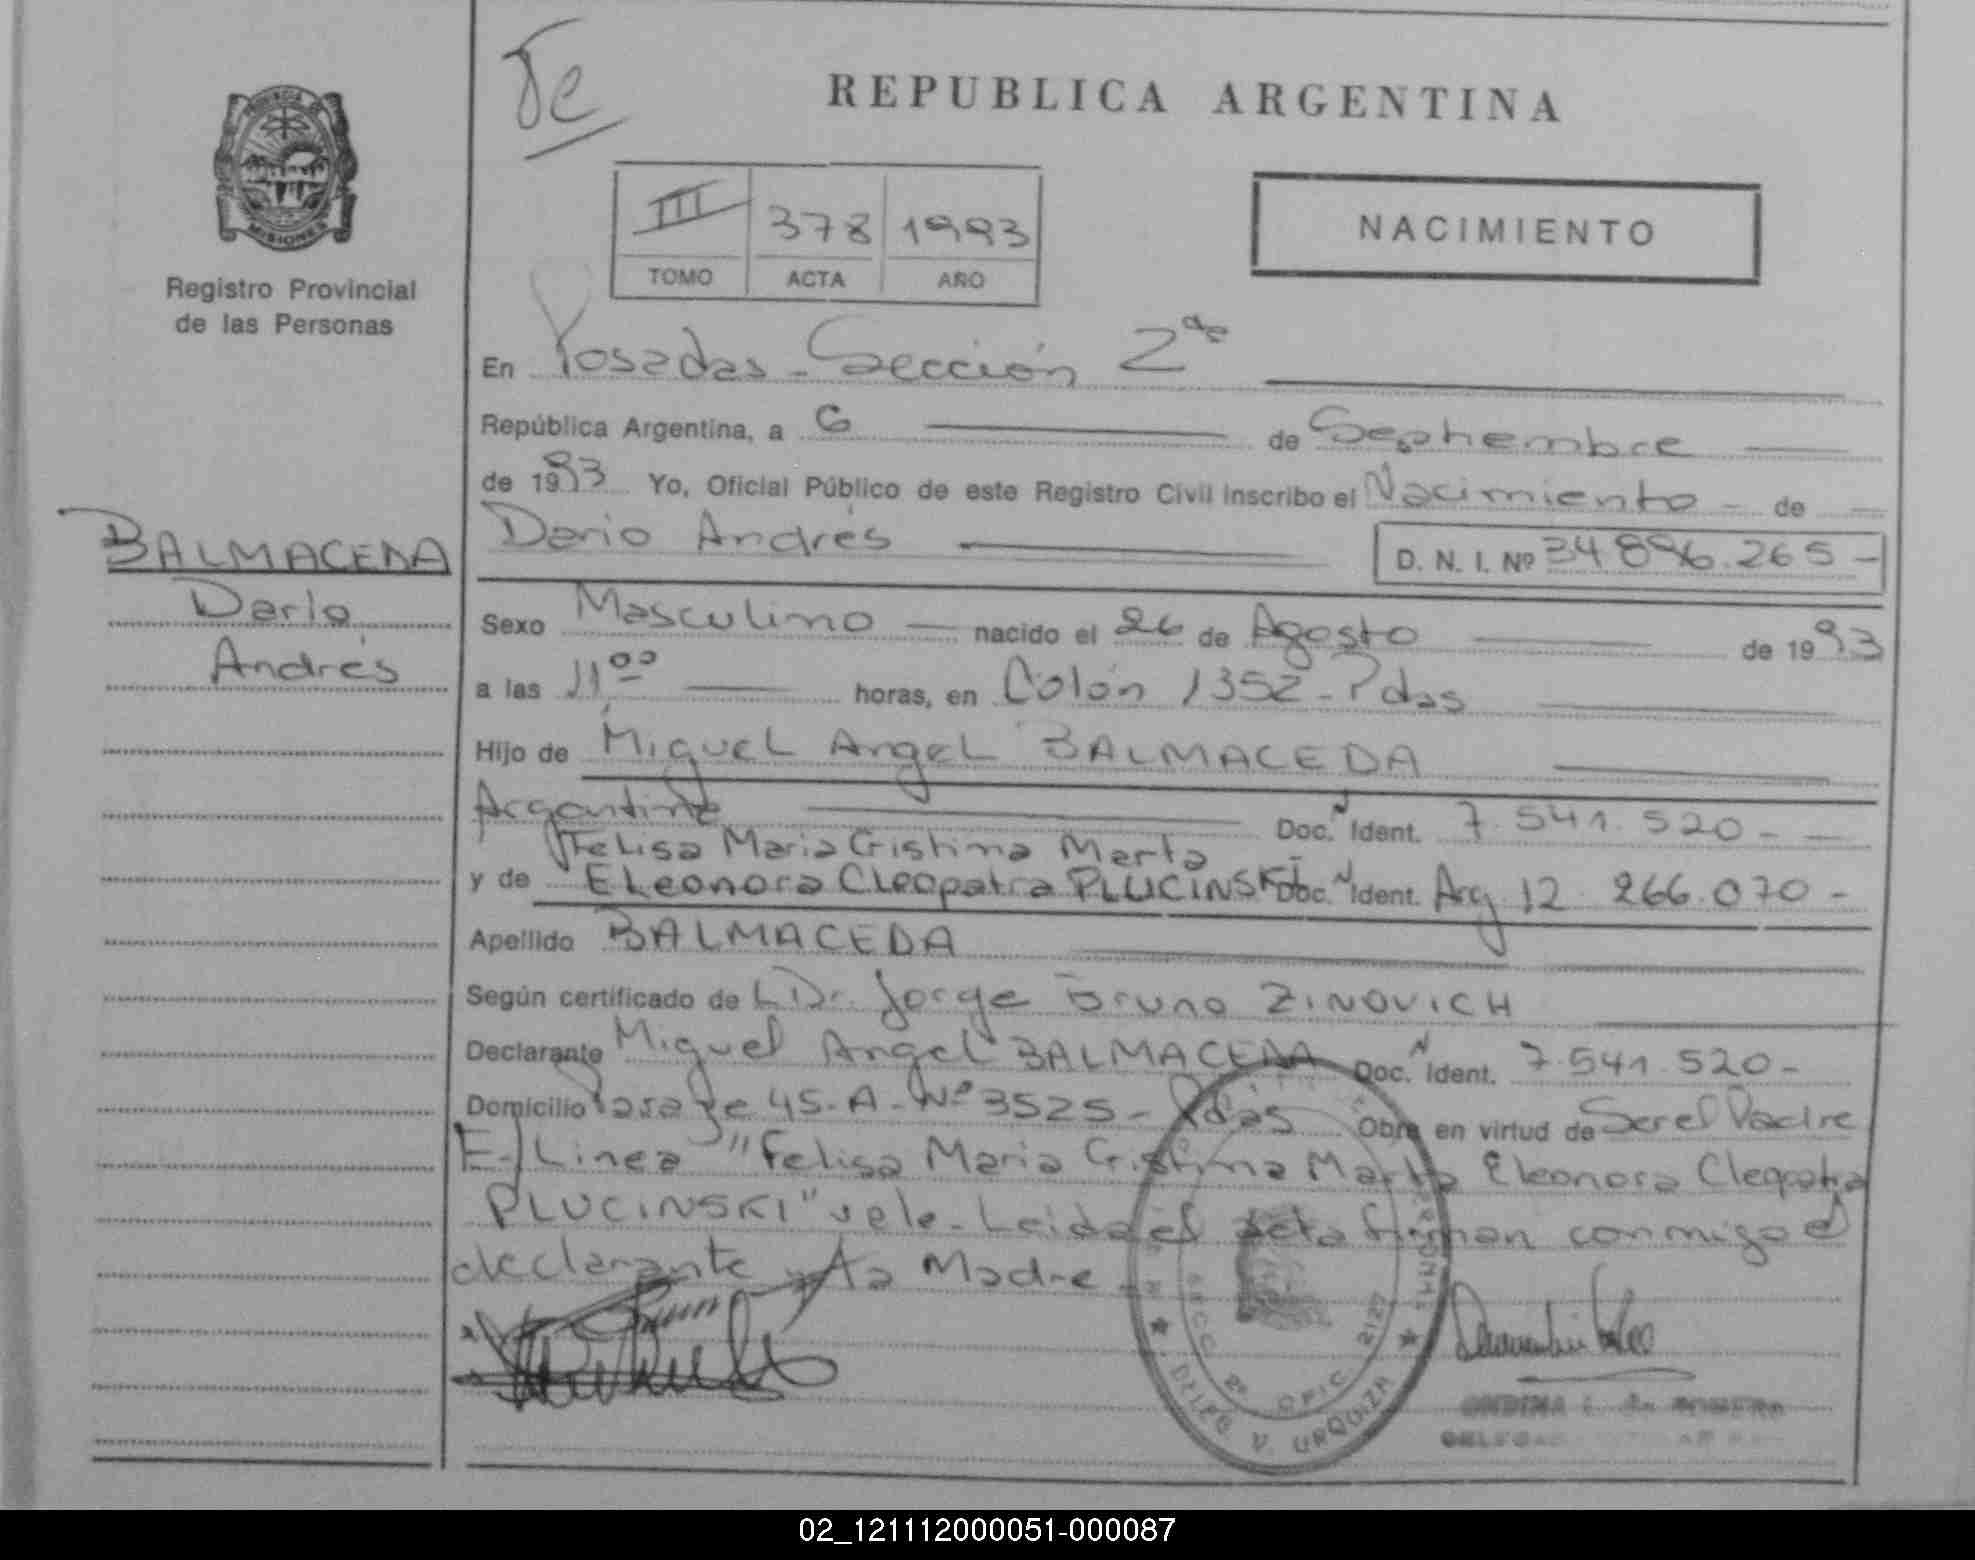 De
REPUBLICA ARGENTINA
PROVINCIA DE
MISIONES
Registro Provincial
de las Personas
III 378 1993
TOMO ACTA AÑO
NACIMIENTO
En Posadas - Sección 2da
República Argentina, a 6 de Septiembre
de 1993 Yo, Oficial Público de este Registro Civil inscribo el Nacimiento - de
Dario Andrés D. N. I. Nº 34.896.265 -
BALMACEDA
Dario
Andrés
Sexo Masculino nacido el 26 de Agosto de 1993
a las 11 00 horas, en Colón 1352 - Pdas
Hijo de Miguel Angel BALMACEDA
Argentino Doc. Ident. 7.541.520 -
Felisa Maria Cristina Marta
y de Eleonora Cleopatra PLUCINSKI Doc. Ident. Arg. 12.266.070 -
Apellido BALMACEDA
Según certificado de Dr. Jorge Bruno ZINOVICH
Declarante Miguel Angel BALMACEDA Doc. Ident. 7.541.520 -
Domicilio Pasaje 45 - A - Nº 3525 - Pdas Obra en virtud de Ser el Padre
E/Linea "Felisa Maria Cristina Marta Eleonora Cleopatra
PLUCINSKI" vale - Leida el acta firman conmigo el
declarante y la Madre -
SECC. 2º OFIC. 2127
DELEG. V. URQUIZA
ONDINA L. de ROMERO